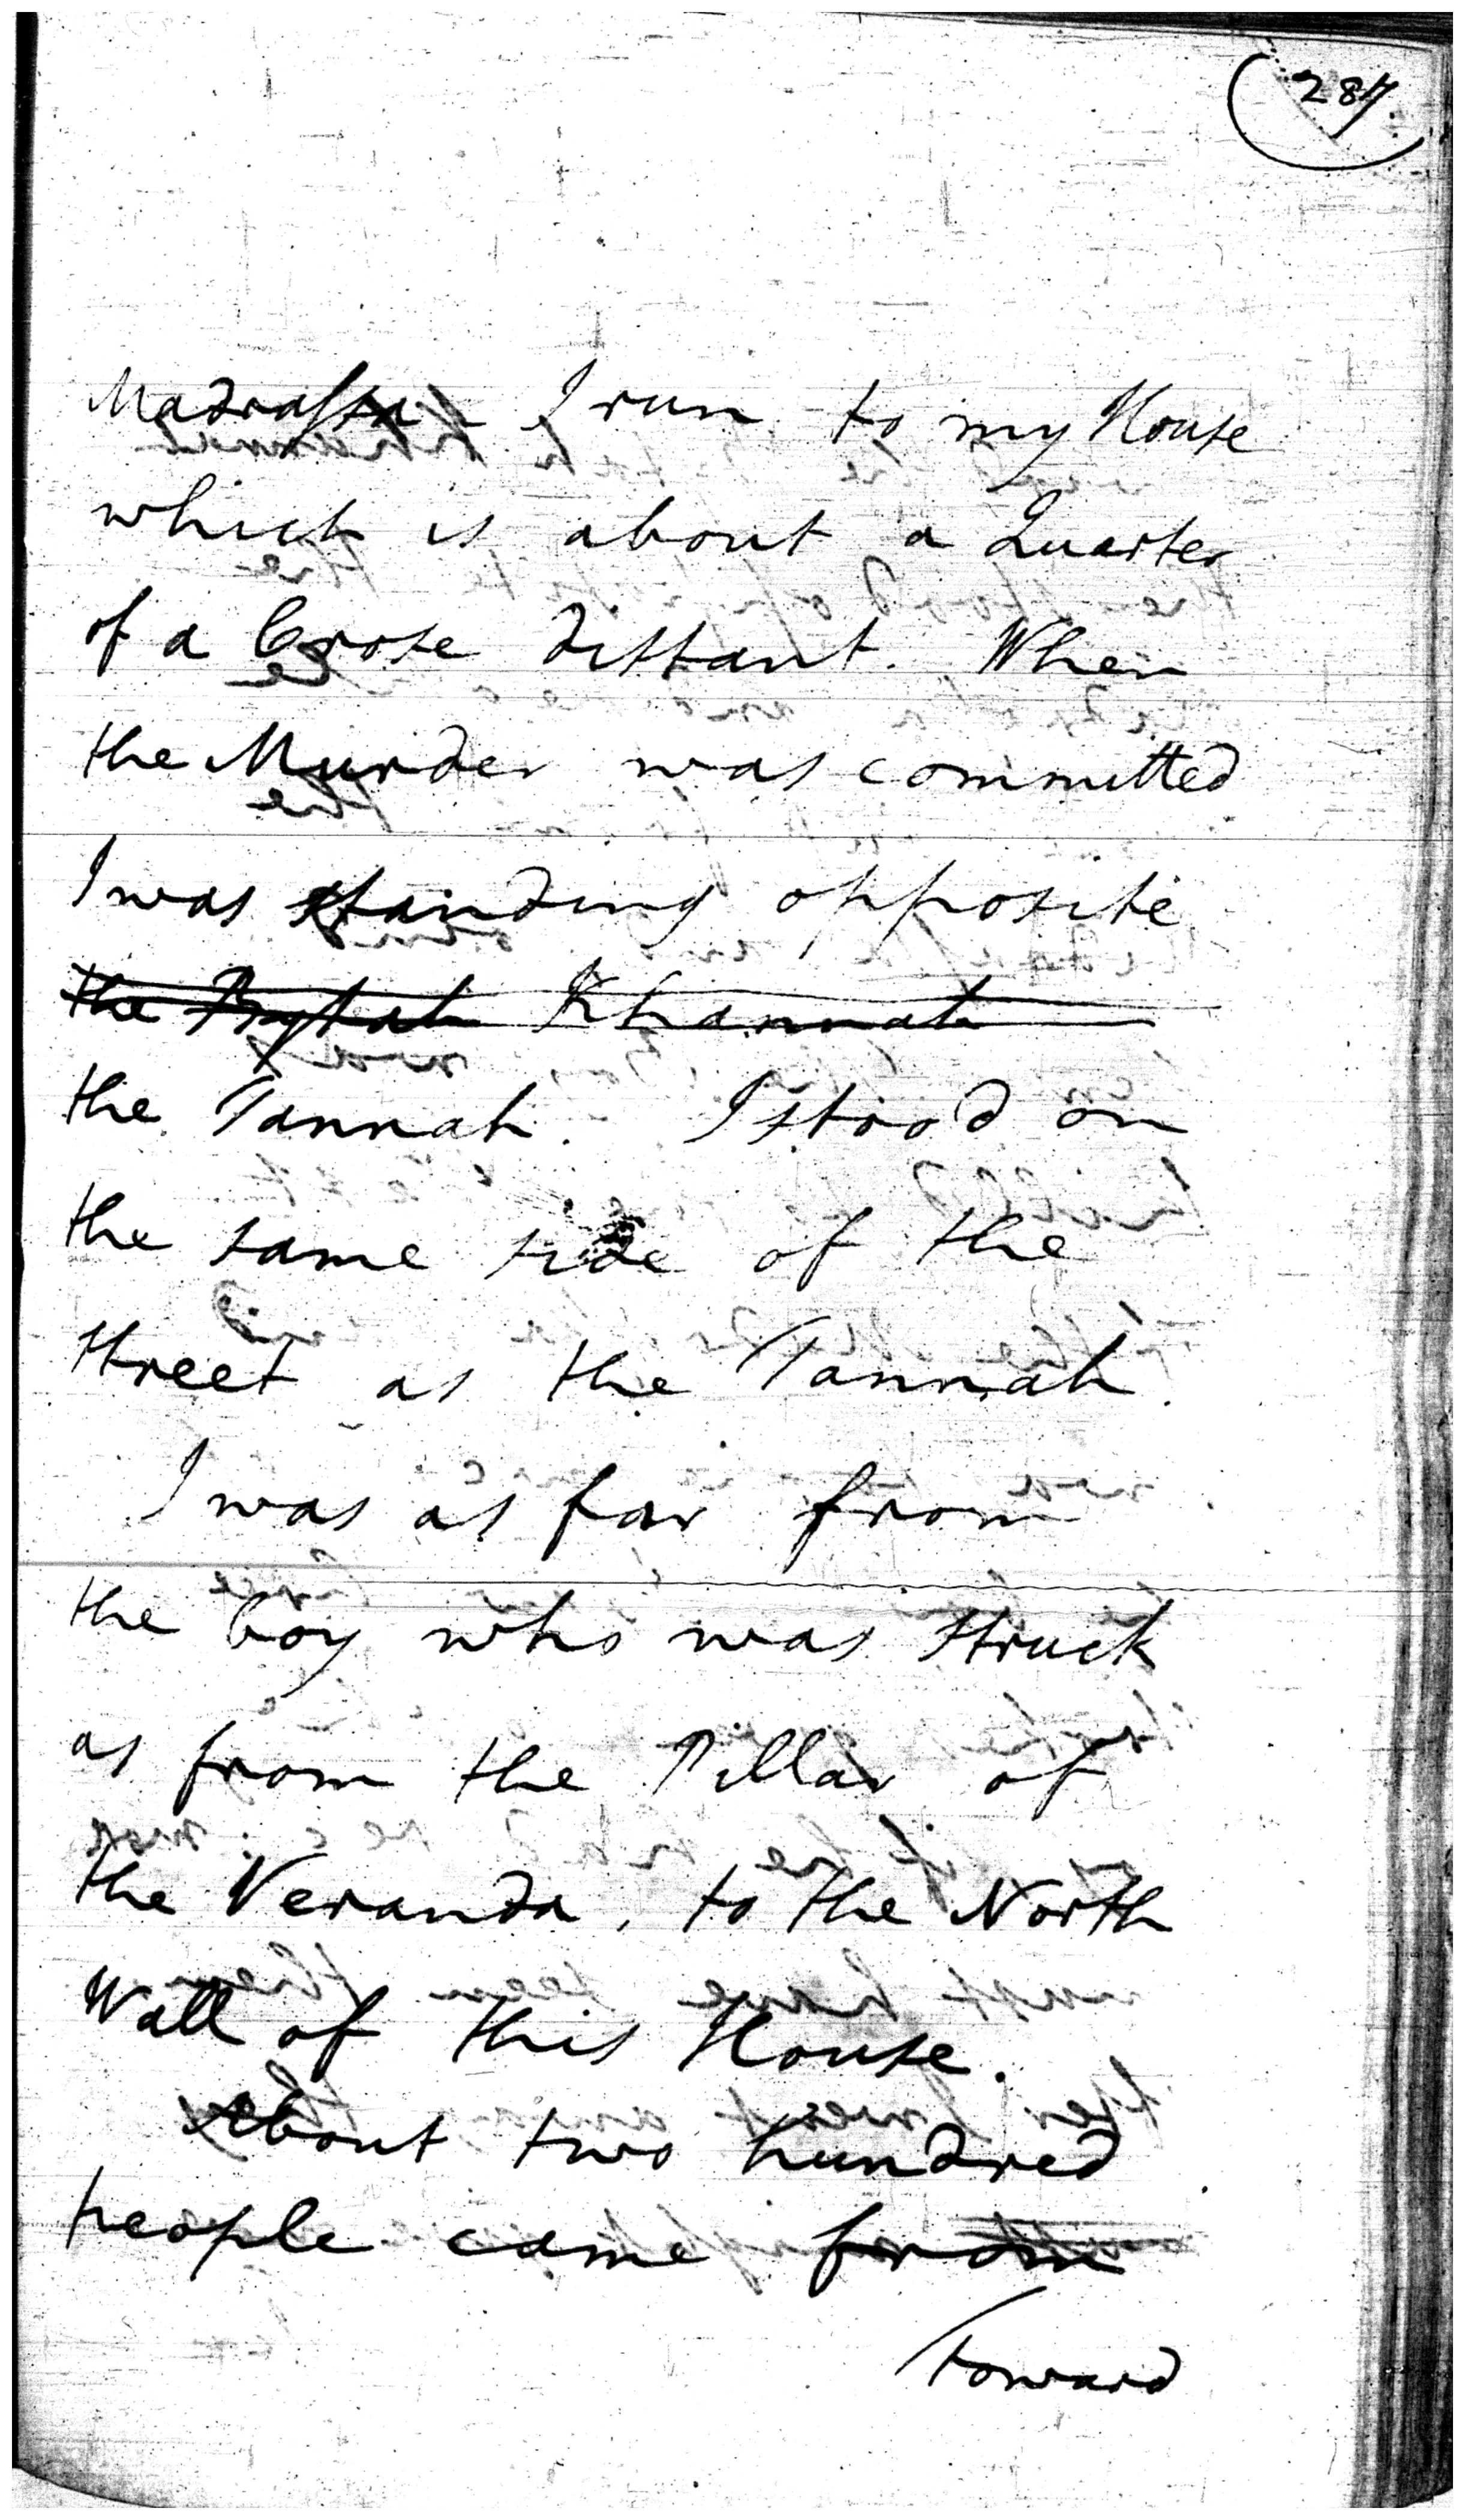 287
Madrassa I run to my House
which is about a Quarter
of a Crose distant. When
the Murder was committed
I was standing opposite
the Bytak Khannah
the Tannah. I stood on
the same side of the
street as the Tannah.
I was as far from
the boy who was struck
as from the Pillar of
the Veranda, to the North
Wall of this House.
About two hundred
people came from
Toward